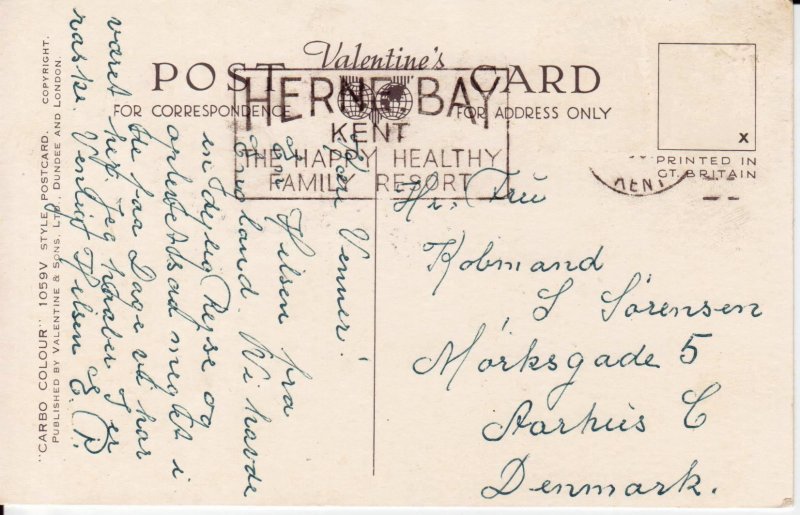 Valentine's
POST CARD
FOR CORRESPONDENCE
FOR ADDRESS ONLY
HERNE BAY
KENT
THE HAPPY HEALTHY
FAMILY RESORT
KENT
x
PRINTED IN
GT. BRITAIN
"CARBO COLOUR" 1059V STYLE POSTCARD. COPYRIGHT.
PUBLISHED BY VALENTINE & SONS, LTD., DUNDEE AND LONDON.
Kære Venner!
Hilsen fra
England. Vi havde
en dejlig Rejse og
oplevet saa meget i
de faa Dage vi har
været her. Jeg haaber I er
raske. Venlig Hilsen
Hr. Fru
Købmand
S Sørensen
Mórksgade 5
Aarhus C
Denmark.